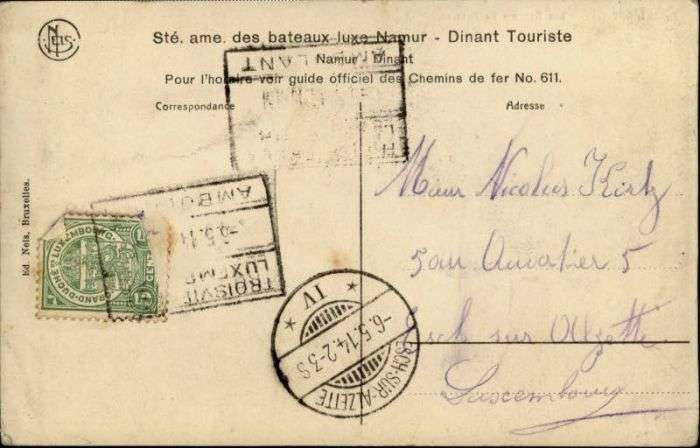 NELS
Sté. ame. des bateaux luxe Namur - Dinant Touriste
Namur - Dinant
Pour l'horaire voir guide officiel des Chemins de fer No. 611.
Correspondance
Adresse
AMBULANT
Ed. Nels, Bruxelles.
AMBUL
-6.5.14
TROISVI
LUXEMB
GRAND-DUCHÉ DE LUXEMBOURG
5 CENT
IV
-6.5.14.2-3S
ESCH-SUR-ALZEITE
Nicolas Kirtz
5
Esch sur Alzette
Luxembourg